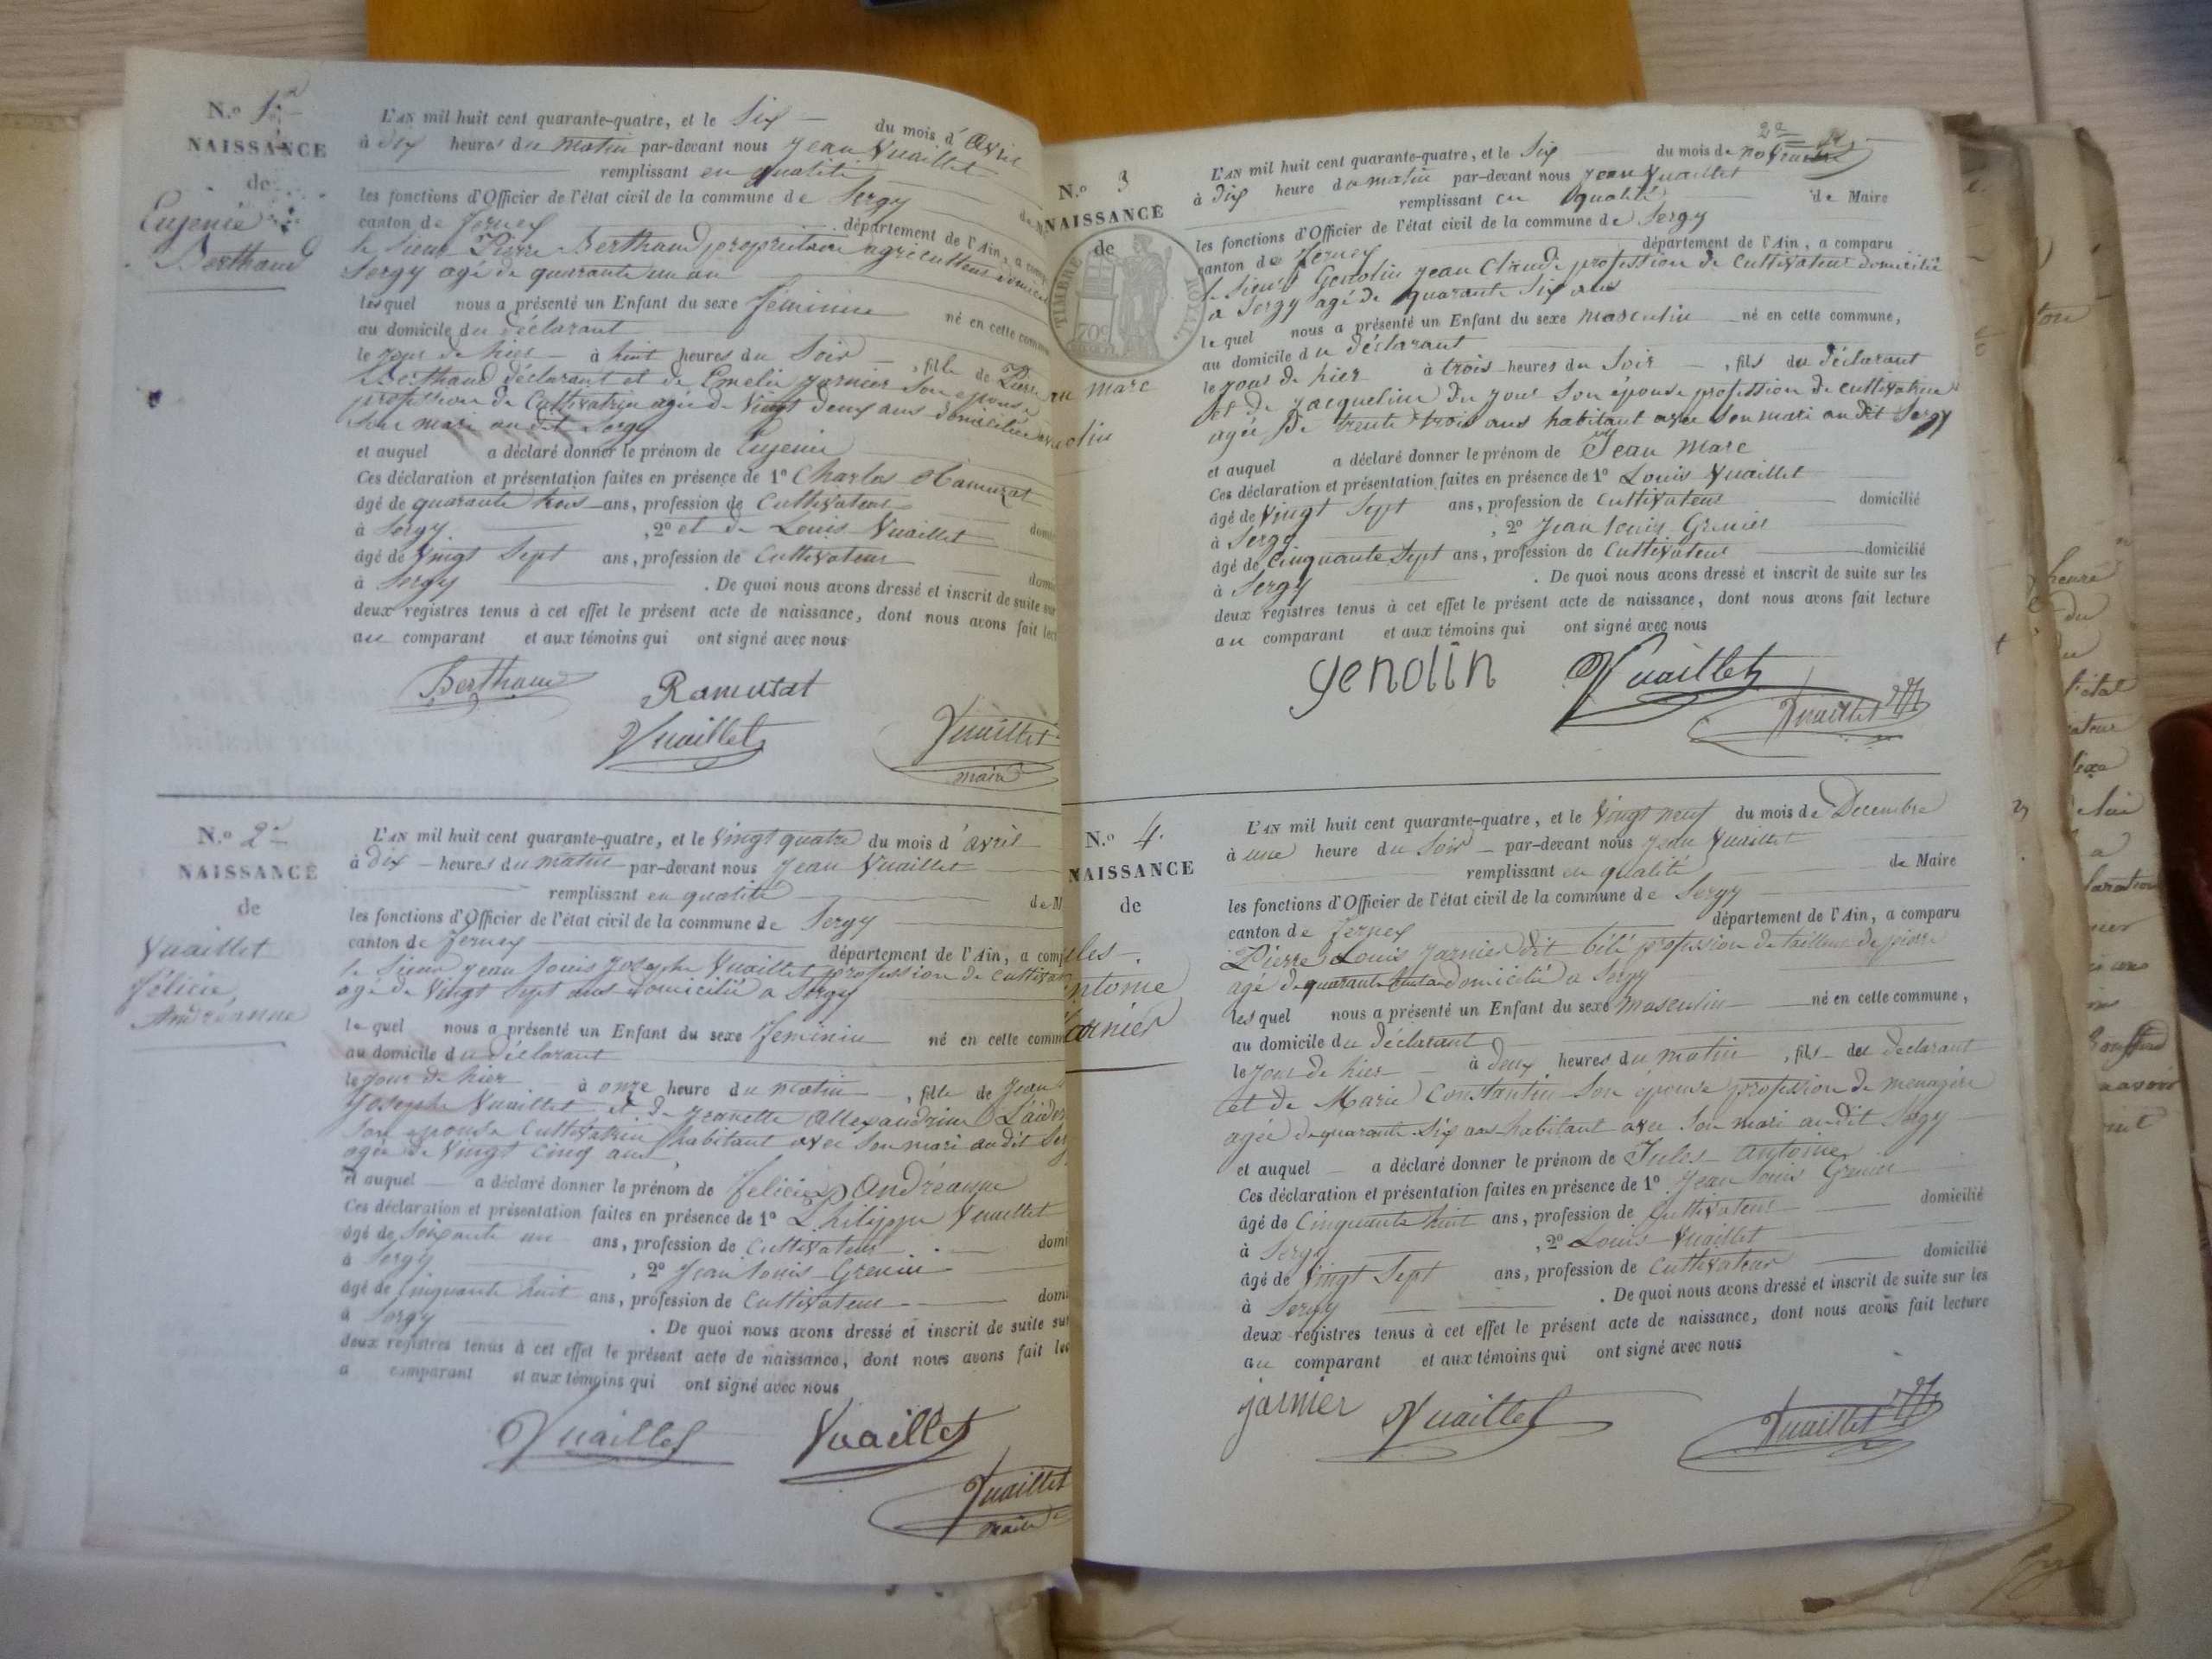 N.o 1er
NAISSANCE
de
Eugenie
Berthaud
L'AN mil huit cent quarante-quatre, et le Six du mois d'Avril
à dix heures du matin par-devant nous Jean Vuaillet
remplissant en qualité
les fonctions d'Officier de l'état civil de la commune de Sergy
canton de Ferney département de l'Ain, a comp
le Sieur Pierre Berthaud propriétaire agriculteur domici
Sergy agé de quarante un an
lesquel nous a présenté un Enfant du sexe féminin né en cette commune
au domicile du déclarant
le jour de hier à huit heures du Soir, fille de Pierre
Berthaud déclarant et de Emelie Jarnier Son epouse
profession de Cultivatrice agée de Vingt deux ans domiciliée avec
Son mari au dit Sergy
et auquel a déclaré donner le prénom de Eugenie
Ces déclaration et présentation faites en présence de 1o Charles Ramuzat
âgé de quarante trois ans, profession de Cultivateur
à Sergy, 2o et de Louis Vuaillet domi
âgé de Vingt Sept ans, profession de Cultivateur
à Sergy. De quoi nous avons dressé et inscrit de suite sur
deux registres tenus à cet effet le présent acte de naissance, dont nous avons fait lect
au comparant et aux témoins qui ont signé avec nous
Berthaud Ramuzat
Vuaillet Vuaillet
maire
N.o 2
NAISSANCE
de
Vuaillet
félicie,
Andréanne
L'AN mil huit cent quarante-quatre, et le Vingt quatre du mois d'avril
à dix heures du matin par-devant nous Jean Vuaillet
remplissant en qualité de M
les fonctions d'Officier de l'état civil de la commune de Sergy
canton de Ferney département de l'Ain, a comp
le Sieur Jean Louis Joseph Vuaillet profession de cultiva
agé de Vingt Sept ans domicilié a Sergy
le quel nous a présenté un Enfant du sexe féminin né en cette comm
au domicile du déclarant
le jour de hier à onze heure du matin, fille de Jean
Joseph Vuaillet et de Jeanette Allexandrine
Son epouse Cultivatrice habitant avec Son mari au dit Ser
agée de Vingt cinq ans
et auquel a déclaré donner le prénom de felicie Andréanne
Ces déclaration et présentation faites en présence de 1o Philippe Vuaillet
âgé de Soixante un ans, profession de Cultivateur domi
à Sergy, 2o Jean Louis Grenier
âgé de Cinquante huit ans, profession de Cultivateur domi
à Sergy. De quoi nous avons dressé et inscrit de suite sur
deux registres tenus à cet effet le présent acte de naissance, dont nous avons fait lec
a comparant et aux témoins qui ont signé avec nous
Vuaillet Vuaillet
Vuaillet
maire
2e
N.o 3
NAISSANCE
de
TIMBRE ROYAL
70c
an marc
olin
L'AN mil huit cent quarante-quatre, et le Six du mois de novembre
à dix heure du matin par-devant nous Jean Vuaillet
remplissant en qualité de Maire
les fonctions d'Officier de l'état civil de la commune de Sergy
canton de Ferney département de l'Ain, a comparu
le Sieur Genolin Jean Claude profession de Cultivateur domicilié
a Sergy agé de quarante Six ans
le quel nous a présenté un Enfant du sexe masculin né en cette commune,
au domicile du déclarant
le jour de hier à trois heures du Soir, fils du déclarant
et de Jacqueline Du jour Son épouse profession de cultivatrice
agée de trente trois ans habitant avec Son mari au dit Sergy
et auquel a déclaré donner le prénom de Jean Marc
Ces déclaration et présentation faites en présence de 1o Louis Vuaillet
âgé de Vingt Sept ans, profession de Cultivateur domicilié
à Sergy, 2o Jean Louis Grenier
âgé de Cinquante Sept ans, profession de Cultivateur domicilié
à Sergy. De quoi nous avons dressé et inscrit de suite sur les
deux registres tenus à cet effet le présent acte de naissance, dont nous avons fait lecture
au comparant et aux témoins qui ont signé avec nous
genolin Vuaillet
Vuaillet
N.o 4.
NAISSANCE
de
les
ntoine
arnier
L'AN mil huit cent quarante-quatre, et le Vingt neuf du mois de Decembre
à une heure du Soir par-devant nous Jean Vuaillet
remplissant en qualité de Maire
les fonctions d'Officier de l'état civil de la commune de Sergy
canton de Ferney département de l'Ain, a comparu
Pierre Louis Jarnier dit profession de tailleur de pierre
agé de quarante domicilié a Sergy
lesquel nous a présenté un Enfant du sexe masculin né en cette commune,
au domicile du déclarant
le jour de hier à deux heures du matin, fils du declarant
et de Marie Constantin Son épouse profession de menagère
agée de quarante Six ans habitant avec Son mari au dit Sergy
et auquel a déclaré donner le prénom de Jules antoine
Ces déclaration et présentation faites en présence de 1o Jean Louis Grenier
âgé de Cinquante huit ans, profession de Cultivateur domicilié
à Sergy, 2o Louis Vuaillet
âgé de Vingt Sept ans, profession de Cultivateur domicilié
à Sergy. De quoi nous avons dressé et inscrit de suite sur les
deux registres tenus à cet effet le présent acte de naissance, dont nous avons fait lecture
au comparant et aux témoins qui ont signé avec nous
jarnier Vuaillet Vuaillet